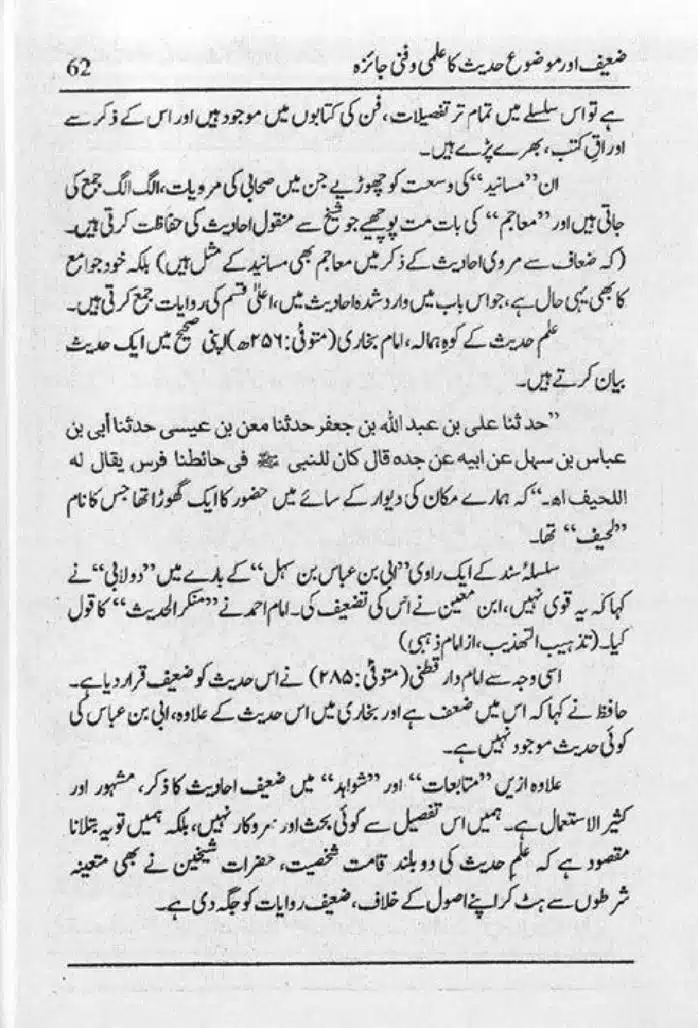 ضعیف اور موضوع حدیث کا علمی و فنی جائزہ 62
ہے تو اس سلسلے میں تمام تر تفصیلات، فن کی کتابوں میں موجود ہیں اور اس کے ذکر سے
اوراقِ کتب، بھرے پڑے ہیں۔
ان ”مسانید“ کی وسعت کو چھوڑیے جن میں صحابی کی مرویات، الگ الگ جمع کی
جاتی ہیں اور ”معاجم“ کی بات مت پوچھیے جو شیخ سے منقول احادیث کی حفاظت کرتی ہیں۔
(کہ ضعاف سے مروی احادیث کے ذکر میں معاجم بھی مسانید کے مثل ہیں) بلکہ خود جوامع
کا بھی یہی حال ہے، جو اس باب میں وارد شدہ احادیث میں، اعلیٰ قسم کی روایات جمع کرتی ہیں۔
علم حدیث کے کوہِ ہمالہ، امام بخاری (متوفٰی: ۲۵۶ھ) اپنی صحیح میں ایک حدیث
بیان کرتے ہیں۔
”حدثنا علی بن عبد اللہ بن جعفر حدثنا معن بن عیسی حدثنا أبی بن
عباس بن سھل عن ابیه عن جده قال کان للنبی ﷺ فی حائطنا فرس یقال له
اللحیف اھ۔“ کہ ہمارے مکان کی دیوار کے سائے میں حضور کا ایک گھوڑا تھا جس کا نام
”لحیف“ تھا۔
سلسلۂ سند کے ایک راوی ”ابی بن عباس بن سہل“ کے بارے میں ”دولابی“ نے
کہا کہ یہ قوی نہیں، ابن معین نے اس کی تضعیف کی۔ امام احمد نے ”منکر الحدیث“ کا قول
کیا۔ (تذہیب التھذیب، از امام ذہبی)
اسی وجہ سے امام دار قطنی (متوفٰی: ۲۸۵) نے اس حدیث کو ضعیف قرار دیا ہے۔
حافظ نے کہا کہ اس میں ضعف ہے اور بخاری میں اس حدیث کے علاوہ، ابی بن عباس کی
کوئی حدیث موجود نہیں ہے۔
علاوہ ازیں ”متابعات“ اور ”شواہد“ میں ضعیف احادیث کا ذکر، مشہور اور
کثیر الاستعمال ہے۔ ہمیں اس تفصیل سے کوئی بحث اور سروکار نہیں، بلکہ ہمیں تو یہ بتلانا
مقصود ہے کہ علمِ حدیث کی دو بلند قامت شخصیت، حضرات شیخین نے بھی متعینہ
شرطوں سے ہٹ کر اپنے اصول کے خلاف، ضعیف روایات کو جگہ دی ہے۔